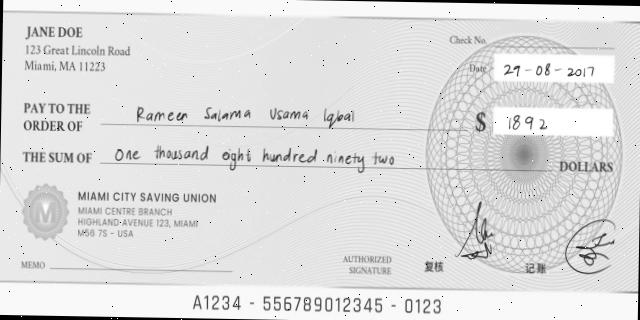 JANE DOE
123 Great Lincoln Road
Miami, MA 11223
Check No.
Date 29-08-2017
PAY TO THE
ORDER OF Rameen Salama Usama Iqbal
$ 1892
THE SUM OF One thousand eight hundred ninety two DOLLARS
MIAMI CITY SAVING UNION
MIAMI CENTRE BRANCH
HIGHLAND AVENUE 123, MIAMI
M56 7S - USA
M
MEMO
AUTHORIZED
SIGNATURE
复核
记账
A1234 - 556789012345 - 0123